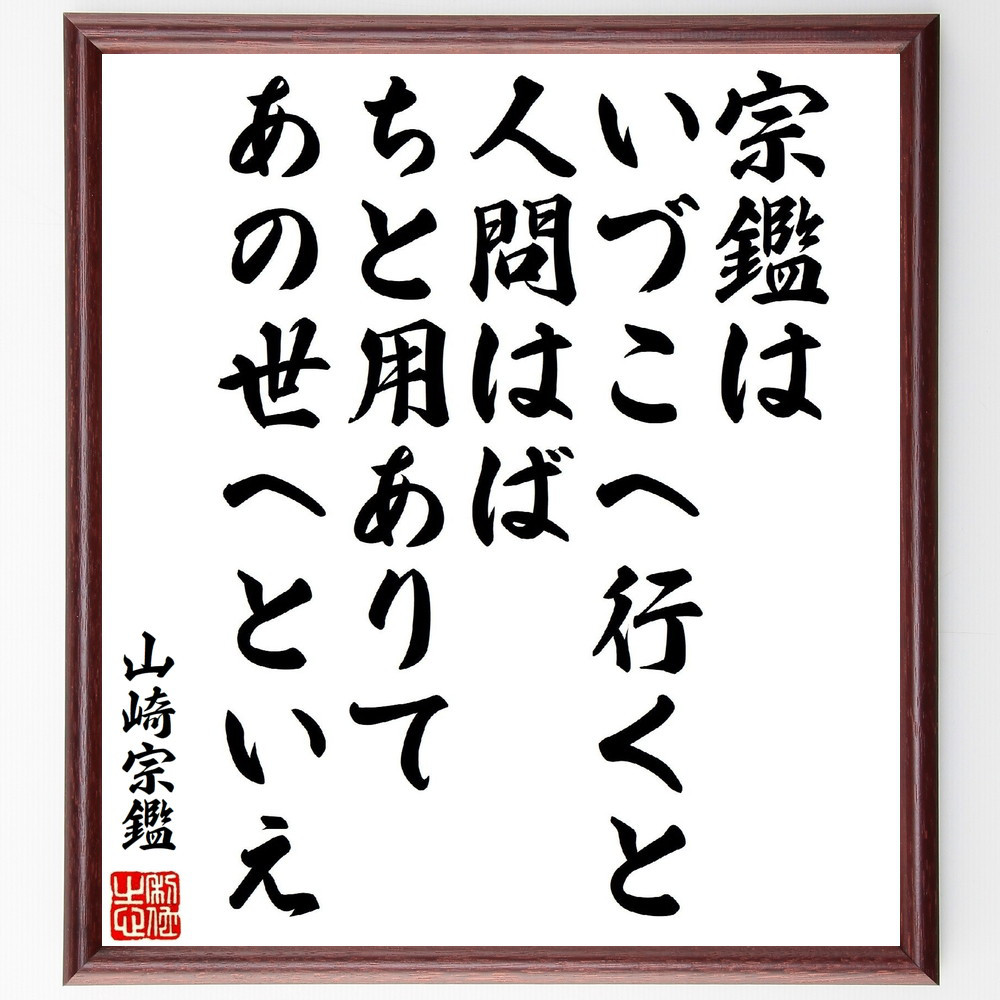 宗鑑は
いづこへ行くと
人問はば
ちと用ありて
あの世へといえ
山崎宗鑑